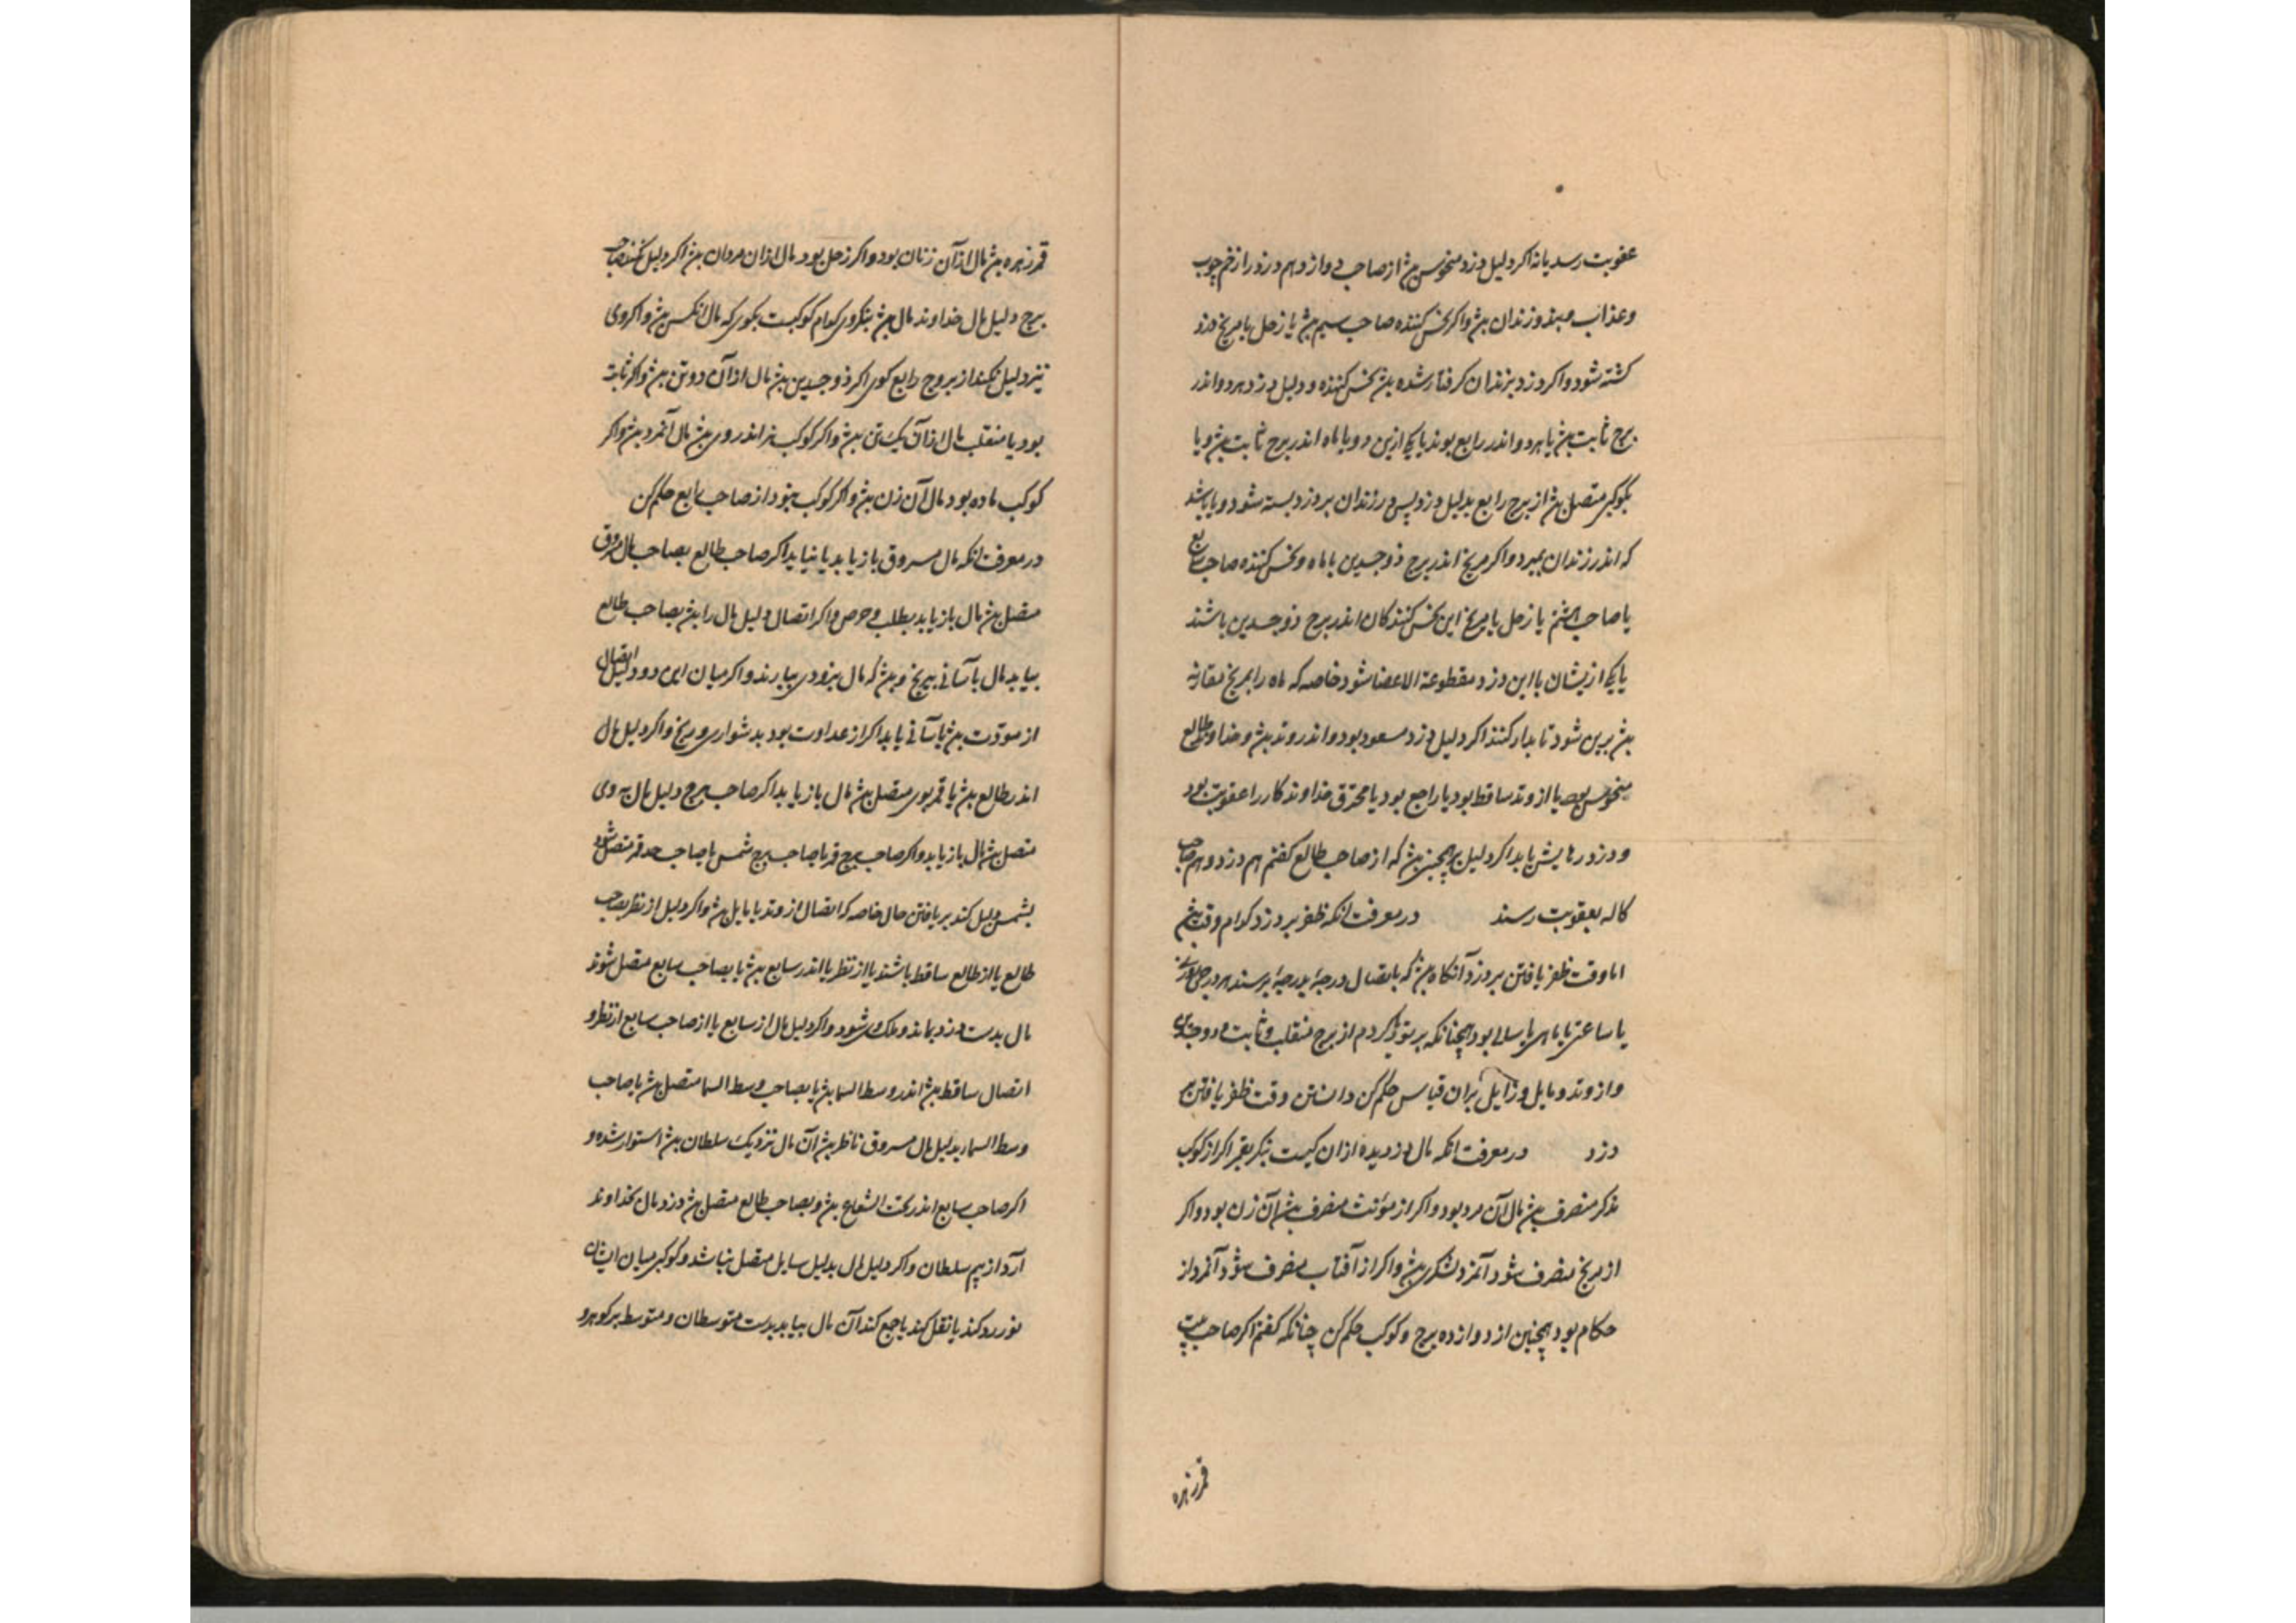 عقوبت رسد یا نه اکر دلیل دزد منحوس بود از صاحب دوازدهم دزد را زخم چوب
وعذاب و بند و زندان بود واکر نحس کننده صاحب سیم بود یا زحل یا مریخ دزد
کشته شود واکر دزد بزندان کرفتار شده بود نحس کننده و دلیل دزد هر دو اندر
برج ثابت بود یا هر دو اندر رابع بوند یا یکی ازین دو با ماه اندر برج ثابت بود و یا
بکوکبی متصل بود از برج رابع بدلیل دزد پس در زندان بر دزد بسته شود و یا باشد
که اندر زندان بمیرد واکر مریخ اندر برج ذو جسدین با ماه و نحس کننده صاحب سابع
یا صاحب هشتم یا زحل یا مریخ این نحس کنندکان اندر برج ذو جسدین باشند
یا یکی ازیشان با این دزد مقطوعة الاعضا شود خاصه که ماه را بمریخ مقارنه
بود برین شود تا بدار کنند اکر دلیل دزد مسعود بود و اندر وتد بود و خداوند طالع
منحوس بود یا از وتد ساقط بود یا راجع بود یا محترق خداوند کار را عقوبت بود
و دزد رهایش یابد اکر دلیل بر همچنین بود که از صاحب طالع کفتم هم دزد و هم صاحب
کاله بعقوبت رسند در معرفت انکه ظفر بر دزد کدام وقت بود
اما وقت ظفر یافتن بر دزد آنکاه بود که باتصال درجهٔ بدرجهٔ برسند هر درجهٔ
یا ساعتی یا ماهی یا سالی بود همچنانکه بر تو یاد کردم از برج منقلب و ثابت و ذو جسدین
و از وتد و مایل و زایل بران قیاس حکم کن دانستن وقت ظفر یافتن بر
دزد در معرفت انکه مال دزدیده ازان کیست بنکر بقمر اکر از کوکب
مذکر منصرف بود مال آن مرد بود و اکر از مؤنث منصرف بود آن زن بود واکر
از مریخ منصرف شود آنمرد لشکری بود واکر از آفتاب منصرف شود آنمرد از
حکام بود همچنین از دوازده برج و کوکب حکم کن چنانکه کفتم اکر صاحب بیت
قمر زهره
قمر زهره بود مال ازآن زنان بود واکر زحل بود مال ازان مردان بود اکر دلیل نکند صاحب
برج دلیل مال خداوند مال بود بنکر وی کدام کوکبست بکوی که مال انکس بود واکر وی
نیز دلیل نکند از بروج رابع کوی اکر ذو جسدین بود مال ازآن دو تن بود واکر ثابت
بود یا منقلب مال ازآن یک تن بود واکر کوکب نر اندر وی بود مال آنمرد بود واکر
کوکب ماده بود مال آن زن بود واکر کوکب نبود از صاحب رابع حکم کن
در معرفت انکه مال مسروق باز یابد یا نیابد اکر صاحب طالع بصاحب مال مسروق
متصل بود مال باز یابد بطلب و حرص واکر اتصال دلیل مال را بود بصاحب طالع
بیابد مال بآسانی بی رنج و بود که مال بزودی بیارند واکر میان این دو دلیل اتصال
از مودّت بود بآسانی یابد اکر از عداوت بود بدشواری و رنج واکر دلیل مال
اندر طالع بود یا قمر بوی متصل بود مال باز یابد اکر صاحب برج دلیل مال به وی
متصل بود مال باز یابد واکر صاحب برج قمر یا صاحب برج شمس یا صاحب حد قمر متصل شود
بشمس دلیل کند بر یافتن مال خاصه که اتصال از وتد یا مایل بود واکر دلیل از نظر صاحب
طالع یا از طالع ساقط باشند یا از نظر یا اندر سابع بود یا بصاحب سابع متصل شوند
مال بدست دزد بماند و هلاک شود واکر دلیل مال از سابع یا از صاحب سابع از نظر و
اتصال ساقط بود اندر وسط السما بود یا بصاحب وسط السما متصل بود یا صاحب
وسط السما بدلیل مال مسروق ناظر بود آن مال نزدیک سلطان بود استوار شده و
اکر صاحب سابع اندر تحت الشعاع بود و بصاحب طالع متصل بود دزد مال بخداوند
آرد از بیم سلطان واکر دلیل مال بدلیل سایل متصل نباشد و کوکبی میان ایشان
نور رد کند یا نقل کند یا جمع کند آن مال بیابد بدست متوسطان و متوسط بر کوهر و